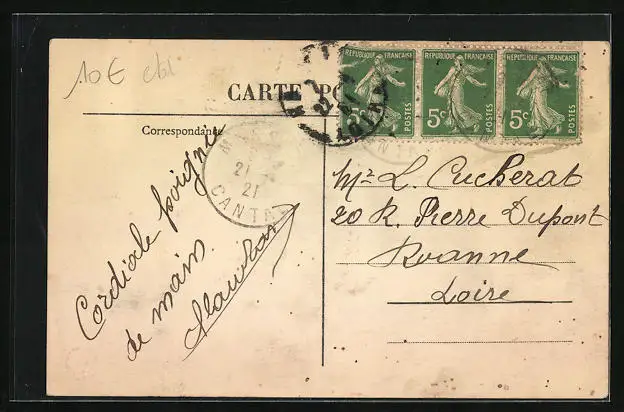 10€
REPUBLIQUE FRANÇAISE REPUBLIQUE FRANÇAISE REPUBLIQUE FRANÇAISE
5c POSTES 5c POSTES 5c POSTES
CARTE
Correspondance
21
21
CANTAL
Cordiale poignée
de main
Mr L. Cucherat
20 R. Pierre Dupont
Roanne
Loire